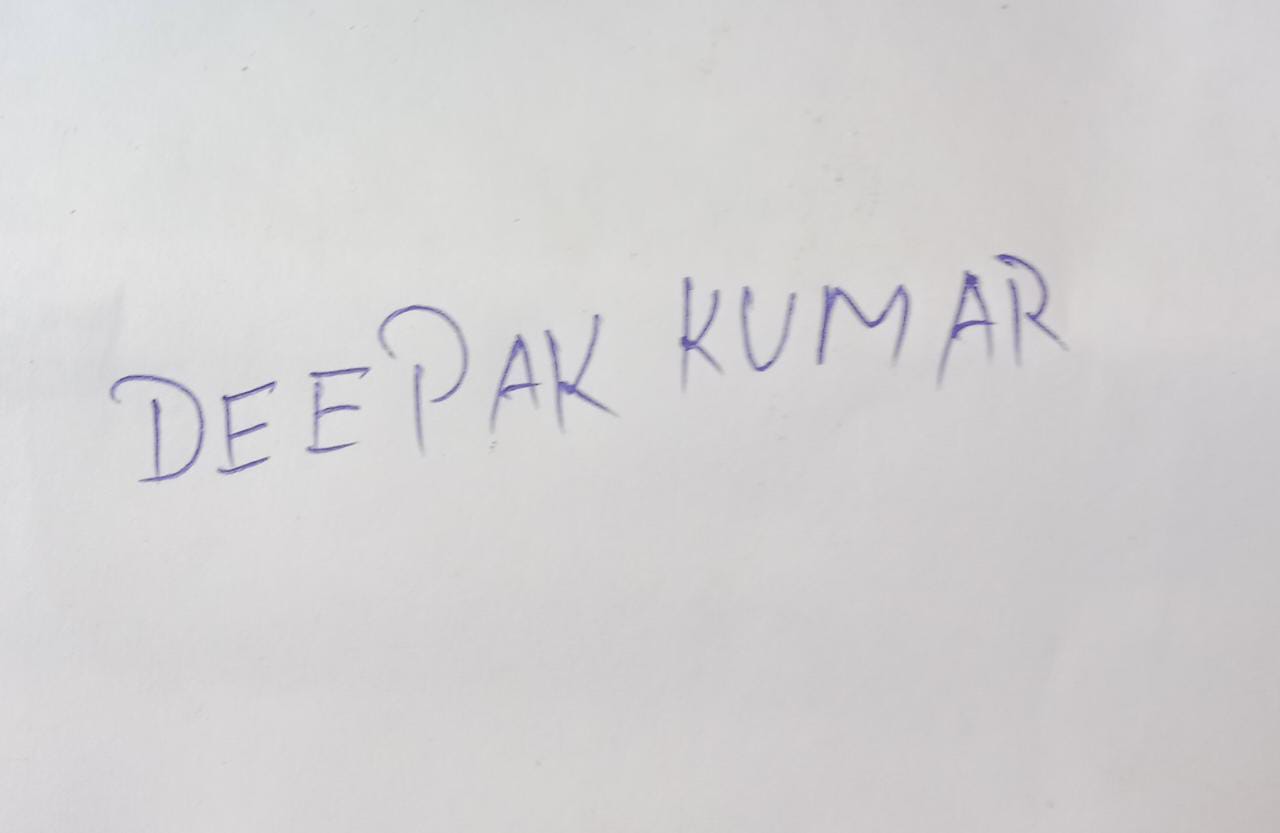 DEEPAK KUMAR